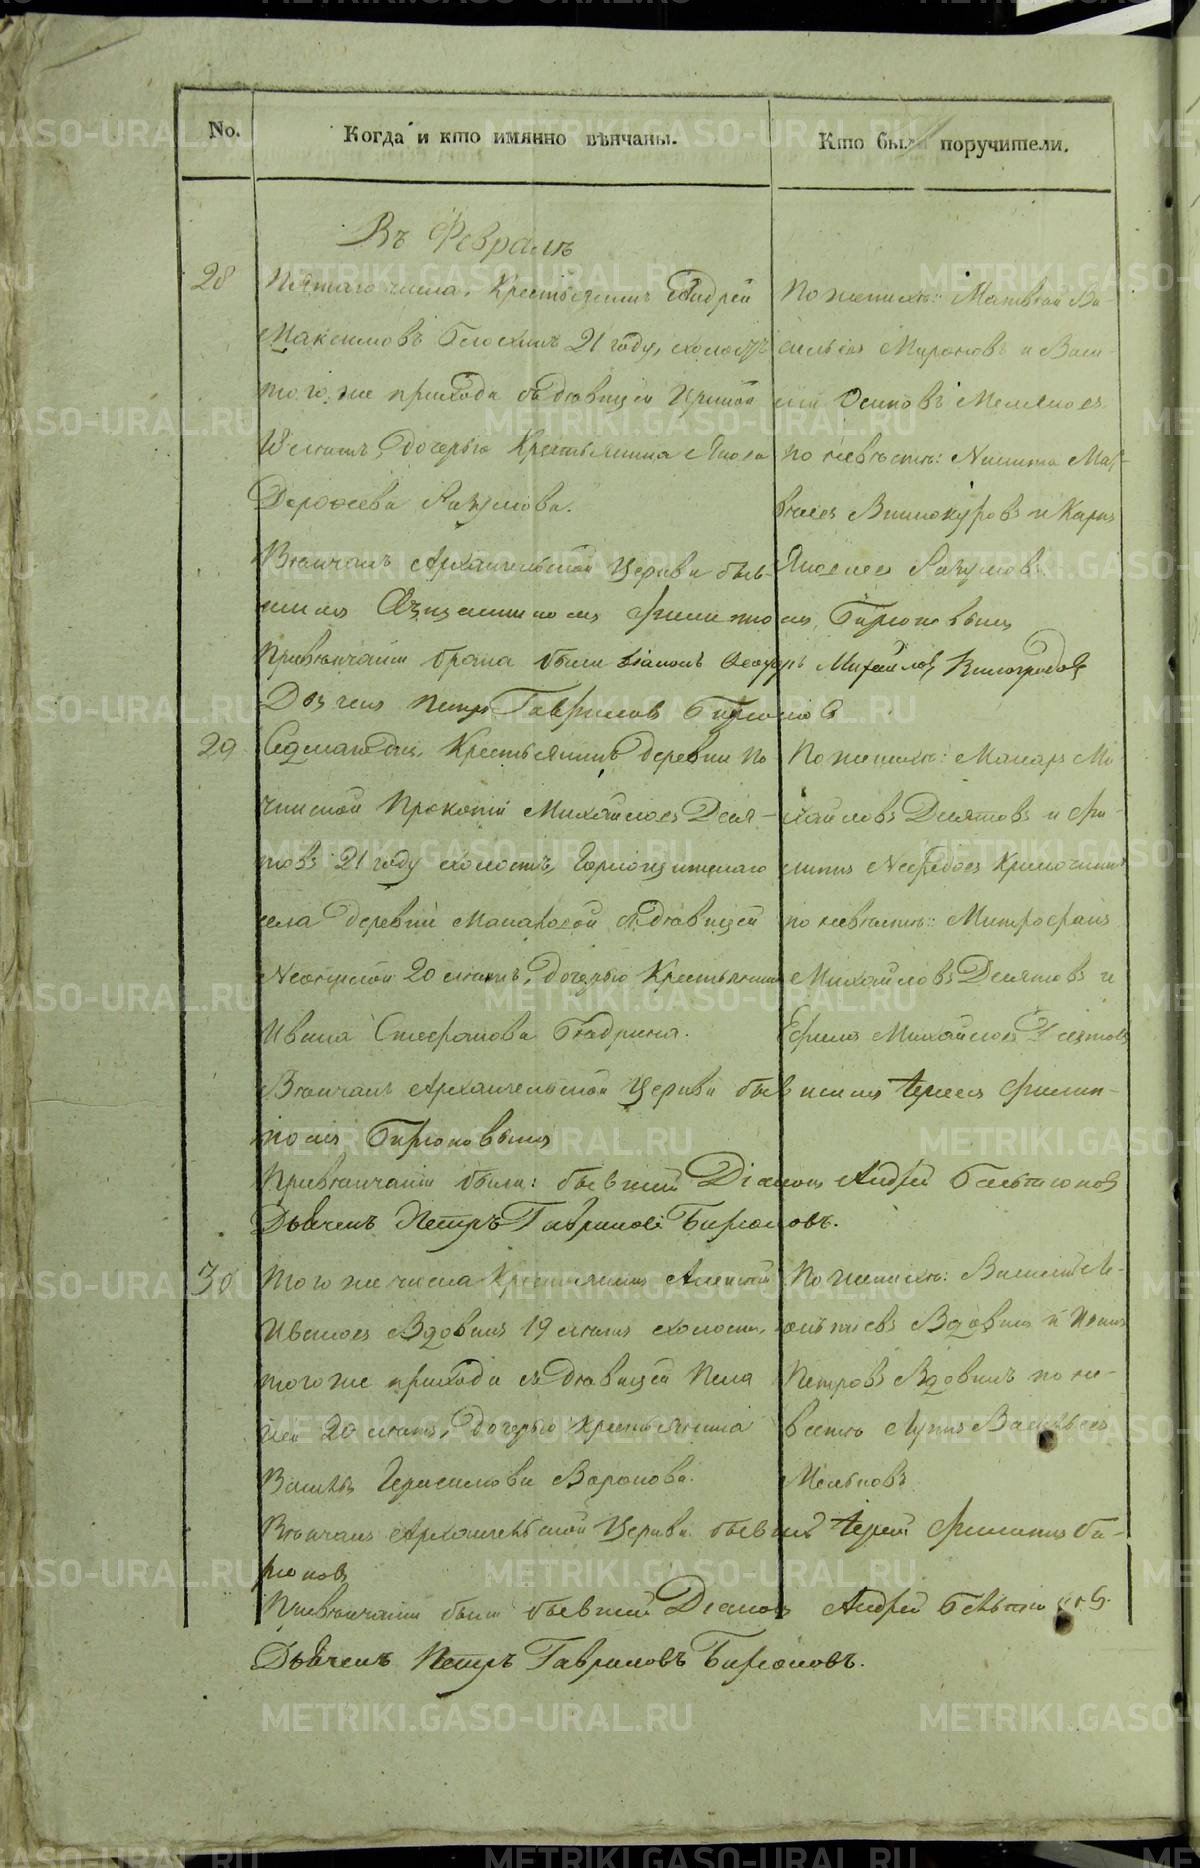 No.
Когда и кто имянно вѣнчаны.
Кто были поручители.
Въ Февралѣ
28
Пятаго числа, Крестьянинъ Андрей
Максимовъ 21 году, холостъ
того же прихода съ дѣвицей Ириной
лѣтъ, дочерью Крестьянина
Дорофеева
По женихѣ: Матвѣй Ва-
сильевъ Мироновъ и Васи-
лій Осиповъ
по невѣстѣ: Никита Мат-
вѣевъ Винокуровъ и Карпъ
Вѣнчалъ Архангельской Церкви быв-
шимъ Священникомъ Филиппомъ Бирюковымъ
При вѣнчаніи брака были Діаконъ Ѳеодоръ Михайловъ Виноградовъ
Дьячекъ Петръ Гавриловъ Бирюковъ
29
Седмаго дня, Крестьянинъ деревни По-
чинской Прокопій Михайловъ Деся-
товъ 21 году холостъ,
села деревни Макаровой съ дѣвицей
20 лѣтъ, дочерью Крестьянина
Ивана Стефанова
По женихѣ: Макаръ Ми-
хайловъ Десятовъ и Фи-
липпъ
по невѣстѣ: Митрофанъ
Михайловъ Десятовъ и
Ефимъ Михайловъ Десятовъ
Вѣнчалъ Архангельской Церкви бывшимъ Іереемъ Филип-
помъ Бирюковымъ
При вѣнчаніи были: бывшій Діаконъ Андрей
Дьячекъ Петръ Гавриловъ Бирюковъ.
30
Того же числа Крестьянинъ Алексѣй
Ивановъ Вдовинъ 19 лѣтъ холостъ,
того же прихода съ дѣвицей Пела
геей 20 лѣтъ, дочерью Крестьянина
Герасимова Воронова.
По женихѣ: Василій Ле-
онтьевъ Вдовинъ и
Петровъ Вдовинъ по не-
вѣстѣ Лупъ Васильевъ
Вѣнчалъ Архангельской Церкви бывшій Іерей Филиппъ Би-
рюковъ
При вѣнчаніи были бывшій Діаконъ Андрей
Дьячекъ Петръ Гавриловъ Бирюковъ.
METRIKI.GASO-URAL.RU